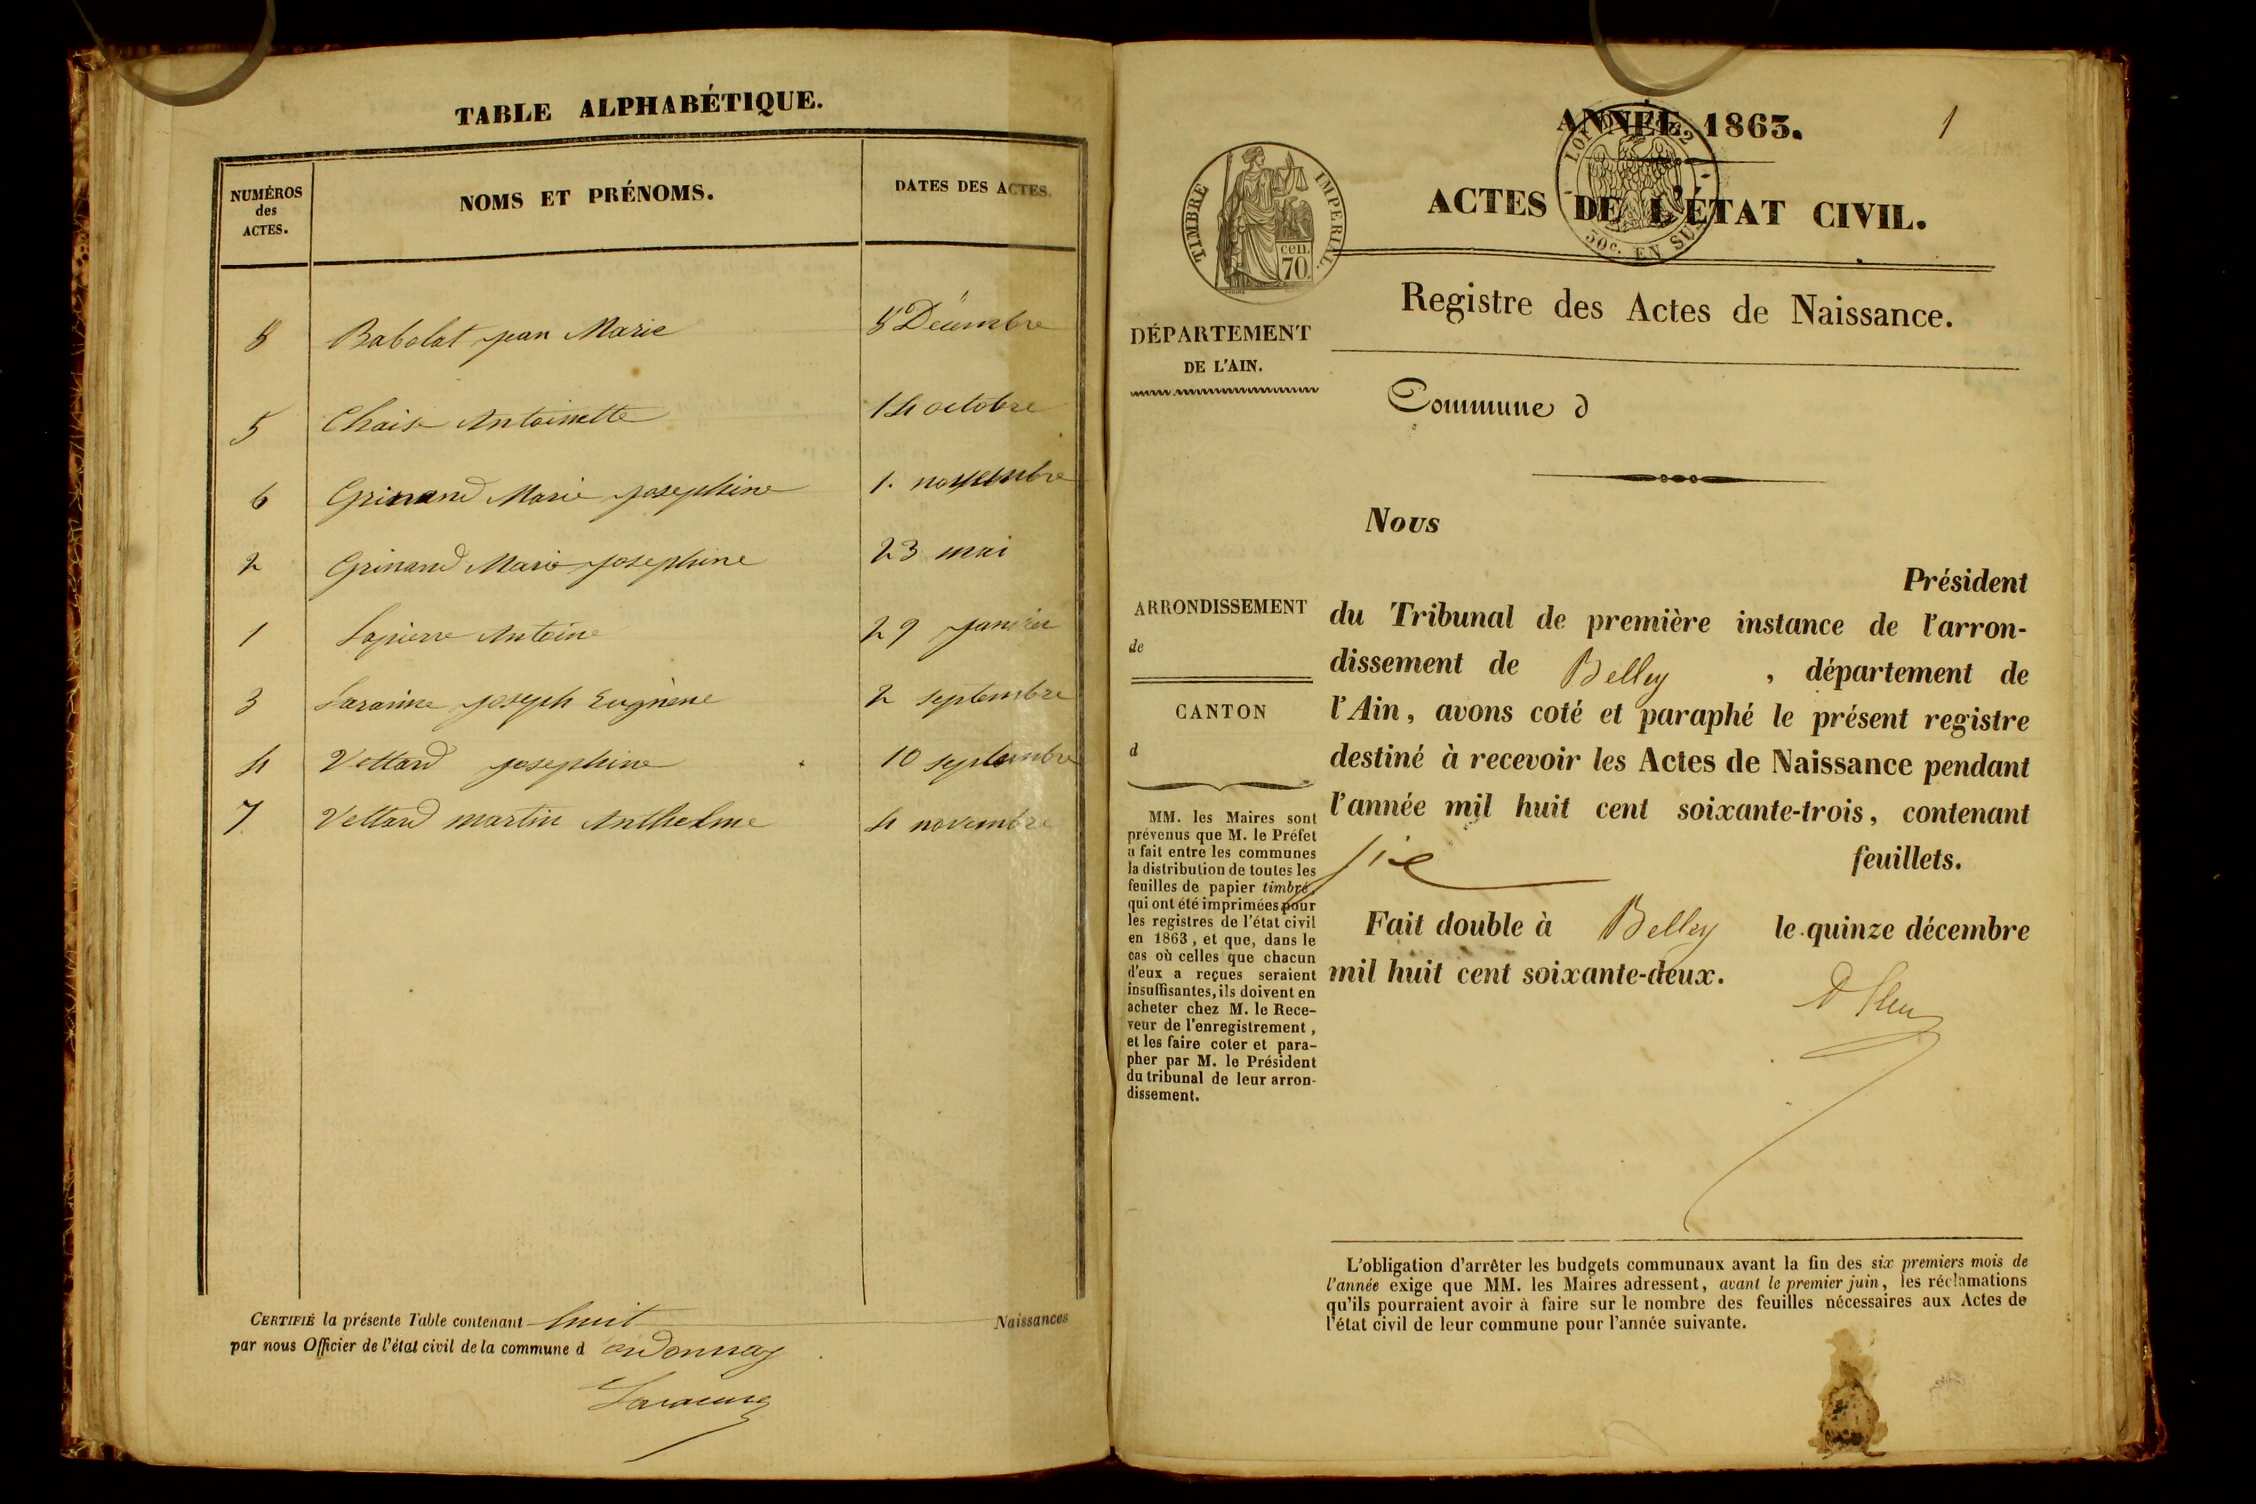 TABLE ALPHABÉTIQUE.
NUMÉROS
des
ACTES.
NOMS ET PRÉNOMS.
DATES DES ACTES.
8 Babolat jean Marie 8 Décembre
5 Chaise Antoinette 14 octobre
6 Grinand Marie josephine 1. novembre
2 Grinand Marie josephine 23 mai
1 Lapierre Antoine 29 janvier
3 joseph Eugnene 2 septembre
4 Vettard josephine 10 septembre
7 Vettard martin Anthelme 4 novembre
CERTIFIÉ la présente Table contenant huit Naissances
par nous Officier de l'état civil de la commune d'ordonnaz
ANNÉE 1863.
1
TIMBRE IMPERIAL.
cen.
70
30c. EN SUS
ACTES DE L'ÉTAT CIVIL.
Registre des Actes de Naissance.
DÉPARTEMENT
DE L'AIN.
Commune d
Nous
Président
ARRONDISSEMENT
de
CANTON
d
du Tribunal de première instance de l'arron-
dissement de Belley , département de
l'Ain, avons coté et paraphé le présent registre
destiné à recevoir les Actes de Naissance pendant
l'année mil huit cent soixante-trois, contenant
feuillets.
Fait double à Belley le quinze décembre
mil huit cent soixante-deux.
MM. les Maires sont
prévenus que M. le Préfet
a fait entre les communes
la distribution de toutes les
feuilles de papier timbré,
qui ont été imprimées pour
les registres de l'état civil
en 1863, et que, dans le
cas où celles que chacun
d'eux a reçues seraient
insuffisantes, ils doivent en
acheter chez M. le Rece-
veur de l'enregistrement,
et les faire coter et para-
pher par M. le Président
du tribunal de leur arron-
dissement.
L'obligation d'arrêter les budgets communaux avant la fin des six premiers mois de
l'année exige que MM. les Maires adressent, avant le premier juin, les réclamations
qu'ils pourraient avoir à faire sur le nombre des feuilles nécessaires aux Actes de
l'état civil de leur commune pour l'année suivante.